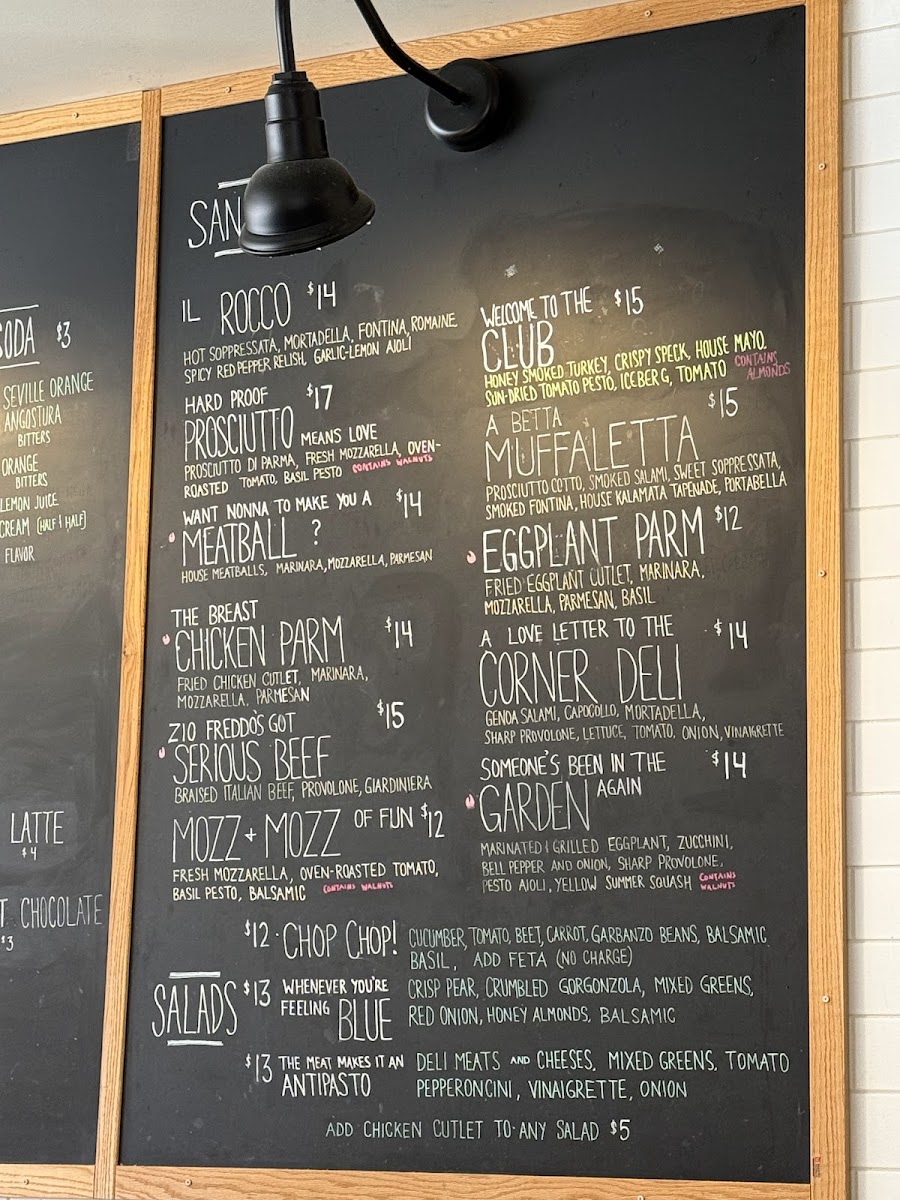 SODA $3
SEVILLE ORANGE
ANGOSTURA
BITTERS
ORANGE
BITTERS
LEMON JUICE
CREAM (HALF & HALF)
FLAVOR
LATTE
$4
CHOCOLATE
$3
SAN
IL ROCCO $14
HOT SOPPRESSATA, MORTADELLA, FONTINA, ROMAINE
SPICY RED PEPPER RELISH, GARLIC-LEMON AIOLI
HARD PROOF $17
PROSCIUTTO MEANS LOVE
PROSCIUTTO DI PARMA, FRESH MOZZARELLA, OVEN-
ROASTED TOMATO, BASIL PESTO CONTAINS WALNUTS
WANT NONNA TO MAKE YOU A $14
MEATBALL ?
HOUSE MEATBALLS, MARINARA, MOZZARELLA, PARMESAN
THE BREAST
CHICKEN PARM $14
FRIED CHICKEN CUTLET, MARINARA,
MOZZARELLA, PARMESAN
ZIO FREDDO'S GOT $15
SERIOUS BEEF
BRAISED ITALIAN BEEF, PROVOLONE, GIARDINIERA
MOZZ + MOZZ OF FUN $12
FRESH MOZZARELLA, OVEN-ROASTED TOMATO,
BASIL PESTO, BALSAMIC CONTAINS WALNUTS
WELCOME TO THE $15
CLUB
HONEY SMOKED TURKEY, CRISPY SPECK, HOUSE MAYO,
SUN-DRIED TOMATO PESTO, ICEBERG, TOMATO CONTAINS
ALMONDS
A BETTA $15
MUFFALETTA
PROSCIUTTO COTTO, SMOKED SALAMI, SWEET SOPPRESSATA,
SMOKED FONTINA, HOUSE KALAMATA TAPENADE, PORTABELLA
EGGPLANT PARM $12
FRIED EGGPLANT CUTLET, MARINARA,
MOZZARELLA, PARMESAN, BASIL
A LOVE LETTER TO THE $14
CORNER DELI
GENOA SALAMI, CAPOCOLLO, MORTADELLA,
SHARP PROVOLONE, LETTUCE, TOMATO, ONION, VINAIGRETTE
SOMEONE'S BEEN IN THE $14
GARDEN AGAIN
MARINATED & GRILLED EGGPLANT, ZUCCHINI,
BELL PEPPER AND ONION, SHARP PROVOLONE,
PESTO AIOLI, YELLOW SUMMER SQUASH CONTAINS
WALNUTS
SALADS
$12 · CHOP CHOP! CUCUMBER, TOMATO, BEET, CARROT, GARBANZO BEANS, BALSAMIC
BASIL, ADD FETA (NO CHARGE)
$13 WHENEVER YOU'RE
FEELING BLUE
CRISP PEAR, CRUMBLED GORGONZOLA, MIXED GREENS,
RED ONION, HONEY ALMONDS, BALSAMIC
$13 THE MEAT MAKES IT AN
ANTIPASTO
DELI MEATS AND CHEESES, MIXED GREENS, TOMATO
PEPPERONCINI, VINAIGRETTE, ONION
ADD CHICKEN CUTLET TO ANY SALAD $5